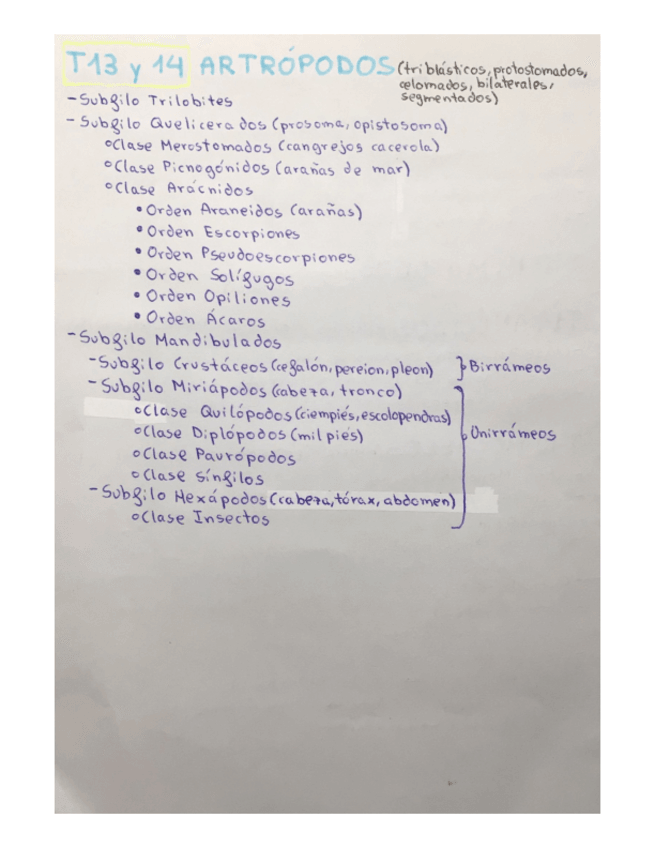 T13 y 14 ARTRÓPODOS (triblásticos, protostomados,
celomados, bilaterales,
segmentados)
- Subfilo Trilobites
- Subfilo Quelicerados (prosoma, opistosoma)
○ Clase Merostomados (cangrejos cacerola)
○ Clase Picnogónidos (arañas de mar)
○ Clase Arácnidos
• Orden Araneidos (arañas)
• Orden Escorpiones
• Orden Pseudoescorpiones
• Orden Solífugos
• Orden Opiliones
• Orden Ácaros
- Subfilo Mandibulados
- Subfilo Crustáceos (cefalón, pereion, pleon) } Birrámeos
- Subfilo Miriápodos (cabeza, tronco)
○ Clase Quilópodos (ciempiés, escolopendras)
○ Clase Diplópodos (mil piés) } Unirrámeos
○ Clase Paurópodos
○ Clase sínfilos
- Subfilo Hexápodos (cabeza, tórax, abdomen)
○ Clase Insectos